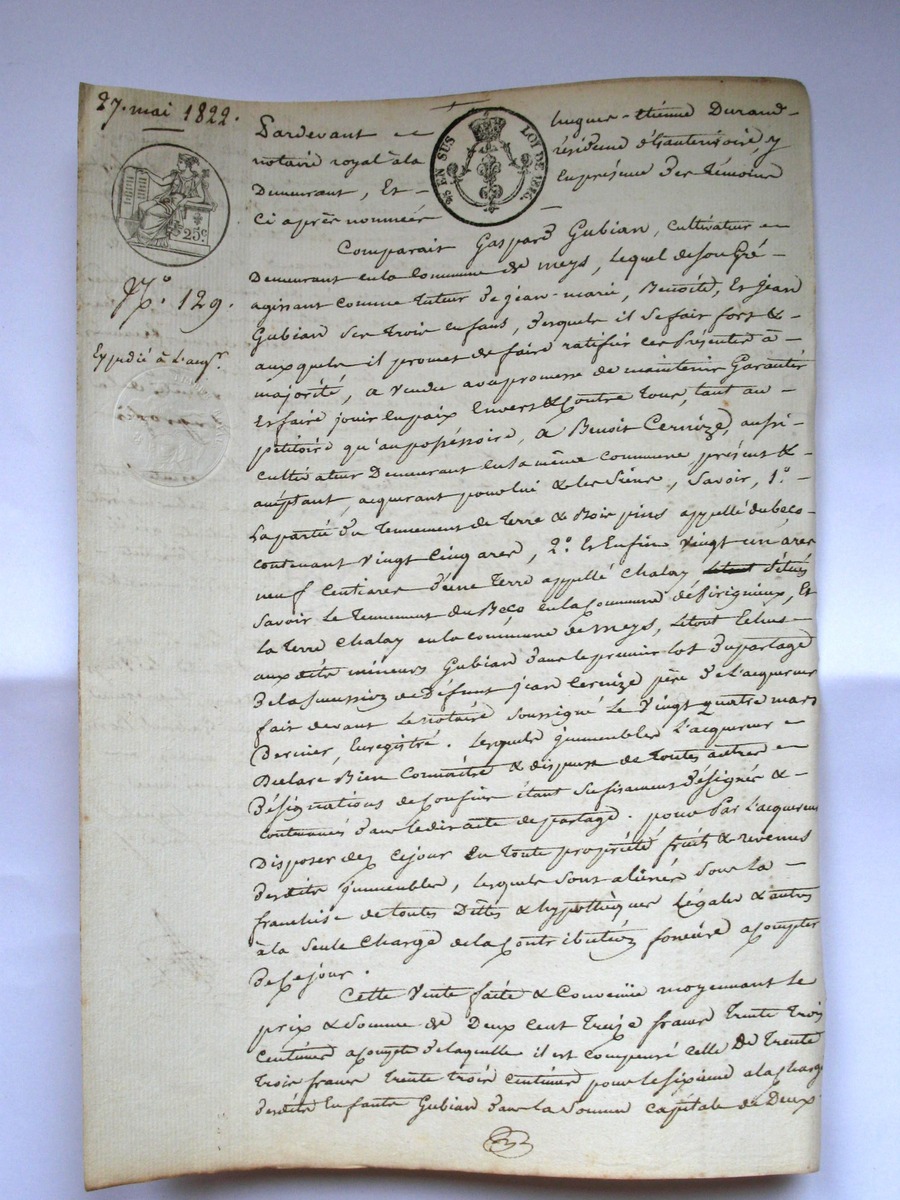 27. mai 1822.
Pardevant
hugues-étienne Durand
notaire royal à la
résidence d'hauterivoire y
Demeurant, Et
En présence des Témoins
ci après nommés
25 EN SUS LOI DE 1816.
25c
No. 129.
Expédié à L'acqr.
Comparait Gaspard Gubian, Cultivateur
Demeurant en la Commune de meys, lequel de son Gré
agissant comme tuteur de jean-marie, Benoite, Et Jean
Gubian ses Trois enfans, desquels il se fait fort &
auxquels il promet de faire ratifier ces présentes à
majorité, a vendu avec promesse de maintenir Garantir
Et faire jouir en paix Envers & Contre Tous, tant au
petitoire qu'au possessoire, à Benoit Cernize, aussi
cultivateur Demeurant en la même commune présent &
acceptant, acquerant pour lui & les Siens, Savoir, 1o.
La partie du Tennement de Terre & Bois pins appellé du beco
contenant vingt Cinq ares, 2o. Et Enfin vingt un ares
neuf Centiares d'une Terre appellé Chalay situés
Savoir Le Tennement du Beco en la Commune de , Et
La Terre Chalay en la commune de meys, Le tout Echus
aux dits mineurs Gubian dans le premier lot du partage
De la Succession de Défunt jean Cernize père de L'acquereur
fait devant Le notaire soussigné Le Vingt quatre mars
Dernier, Enregistré. Lesquels jmmeubles L'acquereur
Declare Bien Connaitre & dispense de toutes autres
Désignations de Confins étant suffisament désignés &
contenues dans le dit acte de partage. pour Par L'acquereur
Disposer dez cejour En toute propriété fruits & revenus
desdits jmmeubles, lesquels sont aliénés sous la
franchise de toutes Dettes & hypothèques Légales & autres
à la Seule Charge de la Contribution foncière a compter
de Cejour.
Cette Vente faite & Convenüe moyennant le
prix & Somme de Deux Cent Treize francs Trente Trois
Centimes a compte de laquelle il est compensé celle De Trente
Trois francs Trente Trois Centimes pour le sixieme a la charge
desdits Enfants Gubian dans la Somme Capitale de Deux